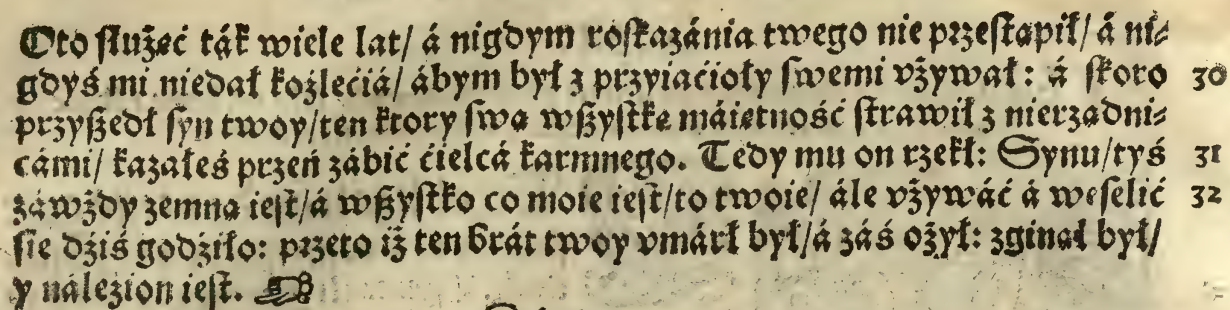 Oto ſlużęć ták wiele lat/ á nigdym roſkazánia twego nie przeſtąpił/ á ni⸗
gdyś mi niedał koźlęciá/ ábym był z przyiaćioły ſwemi vżywał: á ſkoro 30
przyßedł ſyn twoy/ten ktory ſwą wßyſtkę máiętność ſtrawił z nierządni⸗
cámi/ kazałeś przeń zábić ćielcá karmnego. Tedy mu on rzekł: Synu/tyś 31
záwżdy zemną ieſt/á wßyſtko co moie ieſt/to twoie/ ále vżywáć á weſelić 32
ſie dźiś godźiło: przeto iż ten brát twoy vmárł był/á záś ożył: zginął był/
y nálezion ieſt.